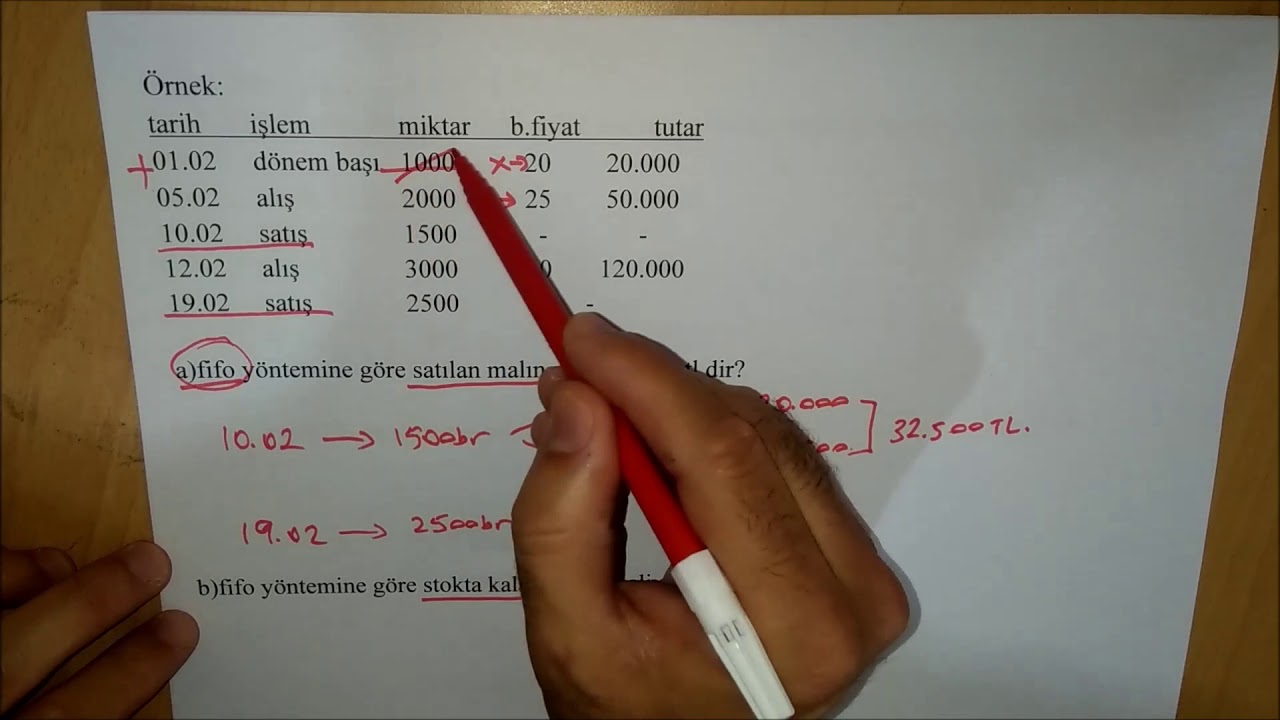 Örnek:
tarih işlem miktar b.fiyat tutar
01.02 dönem başı 1000 20 20.000
05.02 alış 2000 25 50.000
10.02 satış 1500 - -
12.02 alış 3000 120.000
19.02 satış 2500 -
a)fifo yöntemine göre satılan malın dir?
10.02 → 1500br 32.500TL.
19.02 → 2500br
b)fifo yöntemine göre stokta